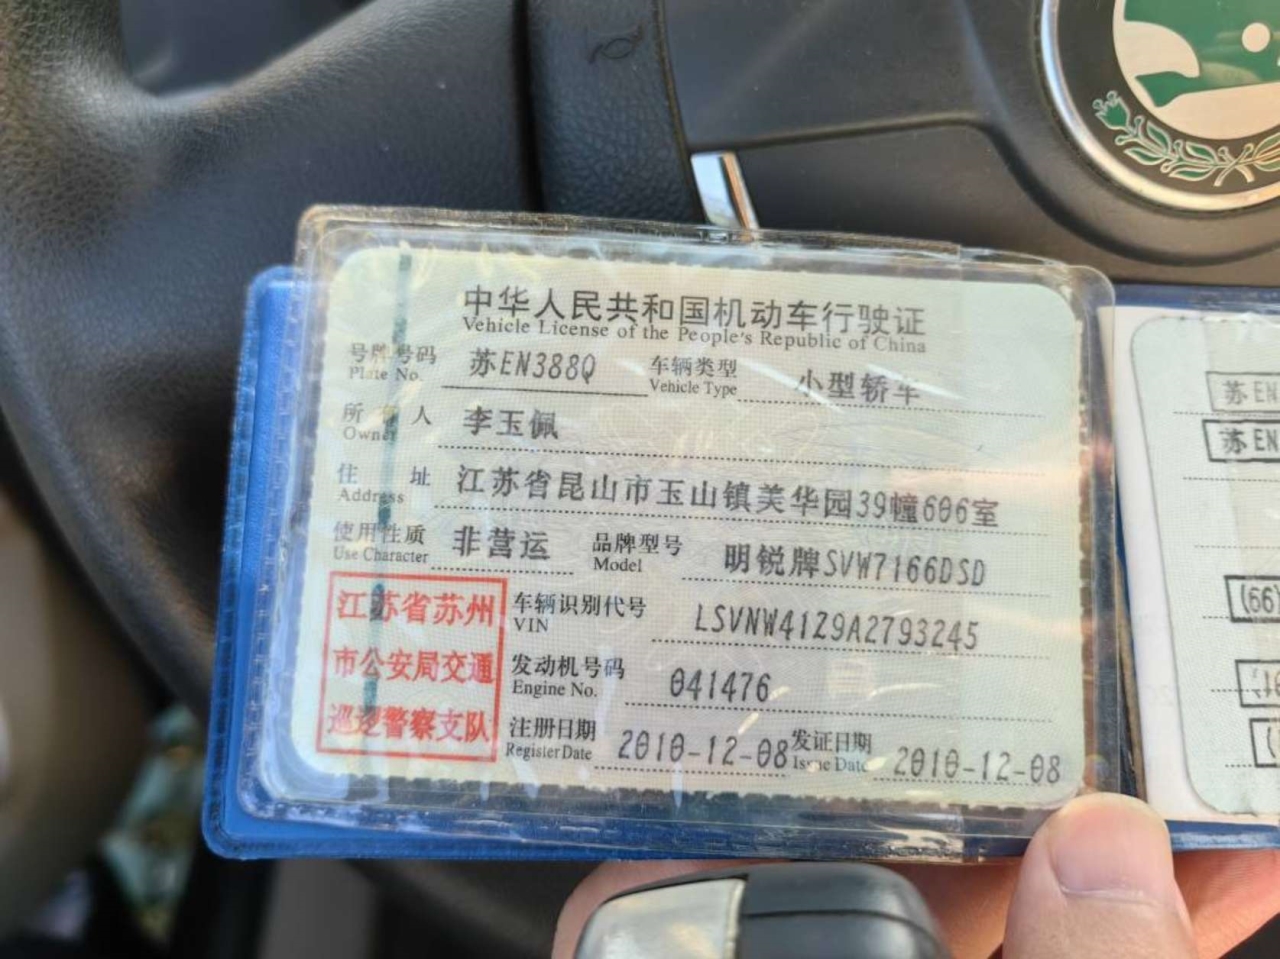 中华人民共和国机动车行驶证
Vehicle License of the People's Republic of China
号牌号码 苏EN388Q 车辆类型 小型轿车
Plate No. Vehicle Type
所有人 李玉佩
Owner
住址 江苏省昆山市玉山镇美华园39幢606室
Address
使用性质 非营运 品牌型号 明锐牌SVW7166DSD
Use Character Model
江苏省苏州
市公安局交通
巡逻警察支队
车辆识别代号 LSVNW41Z9A2793245
VIN
发动机号码 041476
Engine No.
注册日期 2010-12-08 发证日期 2010-12-08
Register Date Issue Date
苏EN
苏EN
(66)